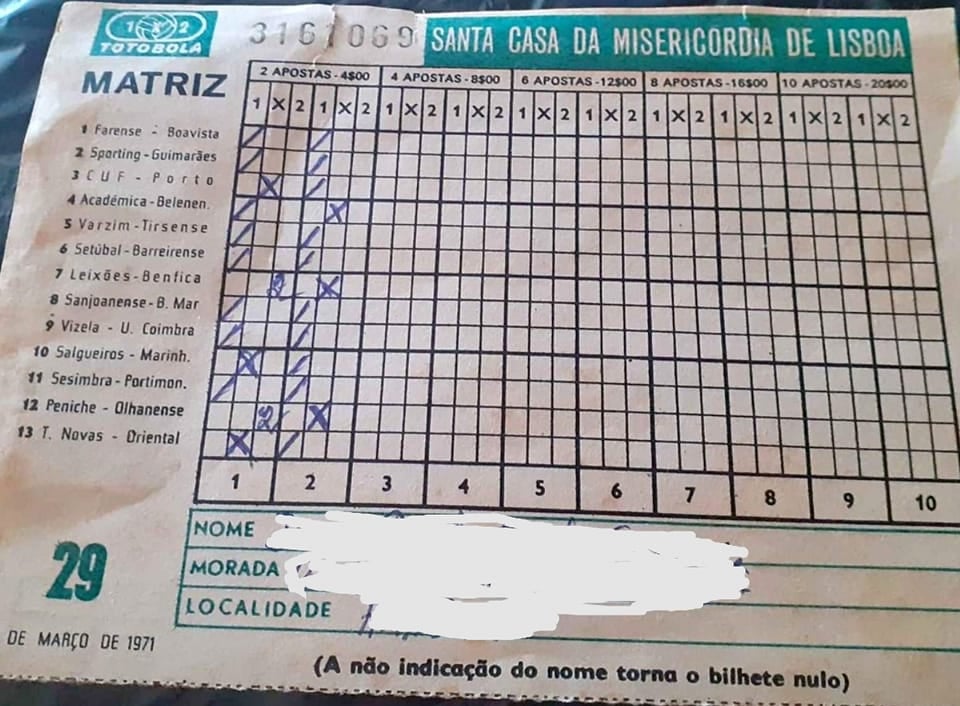 1 X 2
TOTOBOLA
3161069
SANTA CASA DA MISERICORDIA DE LISBOA
MATRIZ
2 APOSTAS - 4$00 4 APOSTAS - 8$00 6 APOSTAS - 12$00 8 APOSTAS - 16$00 10 APOSTAS - 20$00
1 X 2 1 X 2 1 X 2 1 X 2 1 X 2 1 X 2 1 X 2 1 X 2 1 X 2 1 X 2
1 Farense - Boavista
2 Sporting - Guimarães
3 CUF - Porto X
4 Académica - Belenen. X
5 Varzim - Tirsense
6 Setúbal - Barreirense
7 Leixões - Benfica 2 X
8 Sanjoanense - B. Mar
9 Vizela - U. Coimbra
10 Salgueiros - Marinh. X
11 Sesimbra - Portimon.
12 Peniche - Olhanense 2 X
13 T. Novas - Oriental X
1 2 3 4 5 6 7 8 9 10
NOME
MORADA
LOCALIDADE
29
DE MARÇO DE 1971
(A não indicação do nome torna o bilhete nulo)